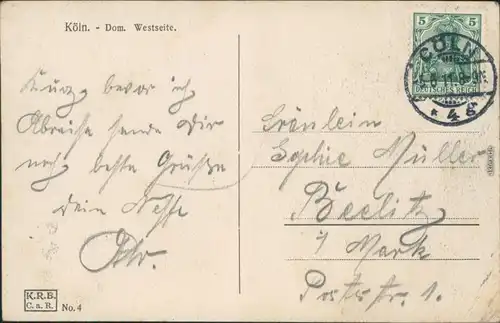 Köln. - Dom. Westseite.
Kurz bevor ich
Abreise sende Dir
noch beste Grüsse
Dein Neffe
K.R.B.
C.a.R.
No. 4
5 5
DEUTSCHES REICH
CÖLN
* 4g
Fräulein
Sophie Müller
Beelitz
i/ Mark
Poststr. 1.